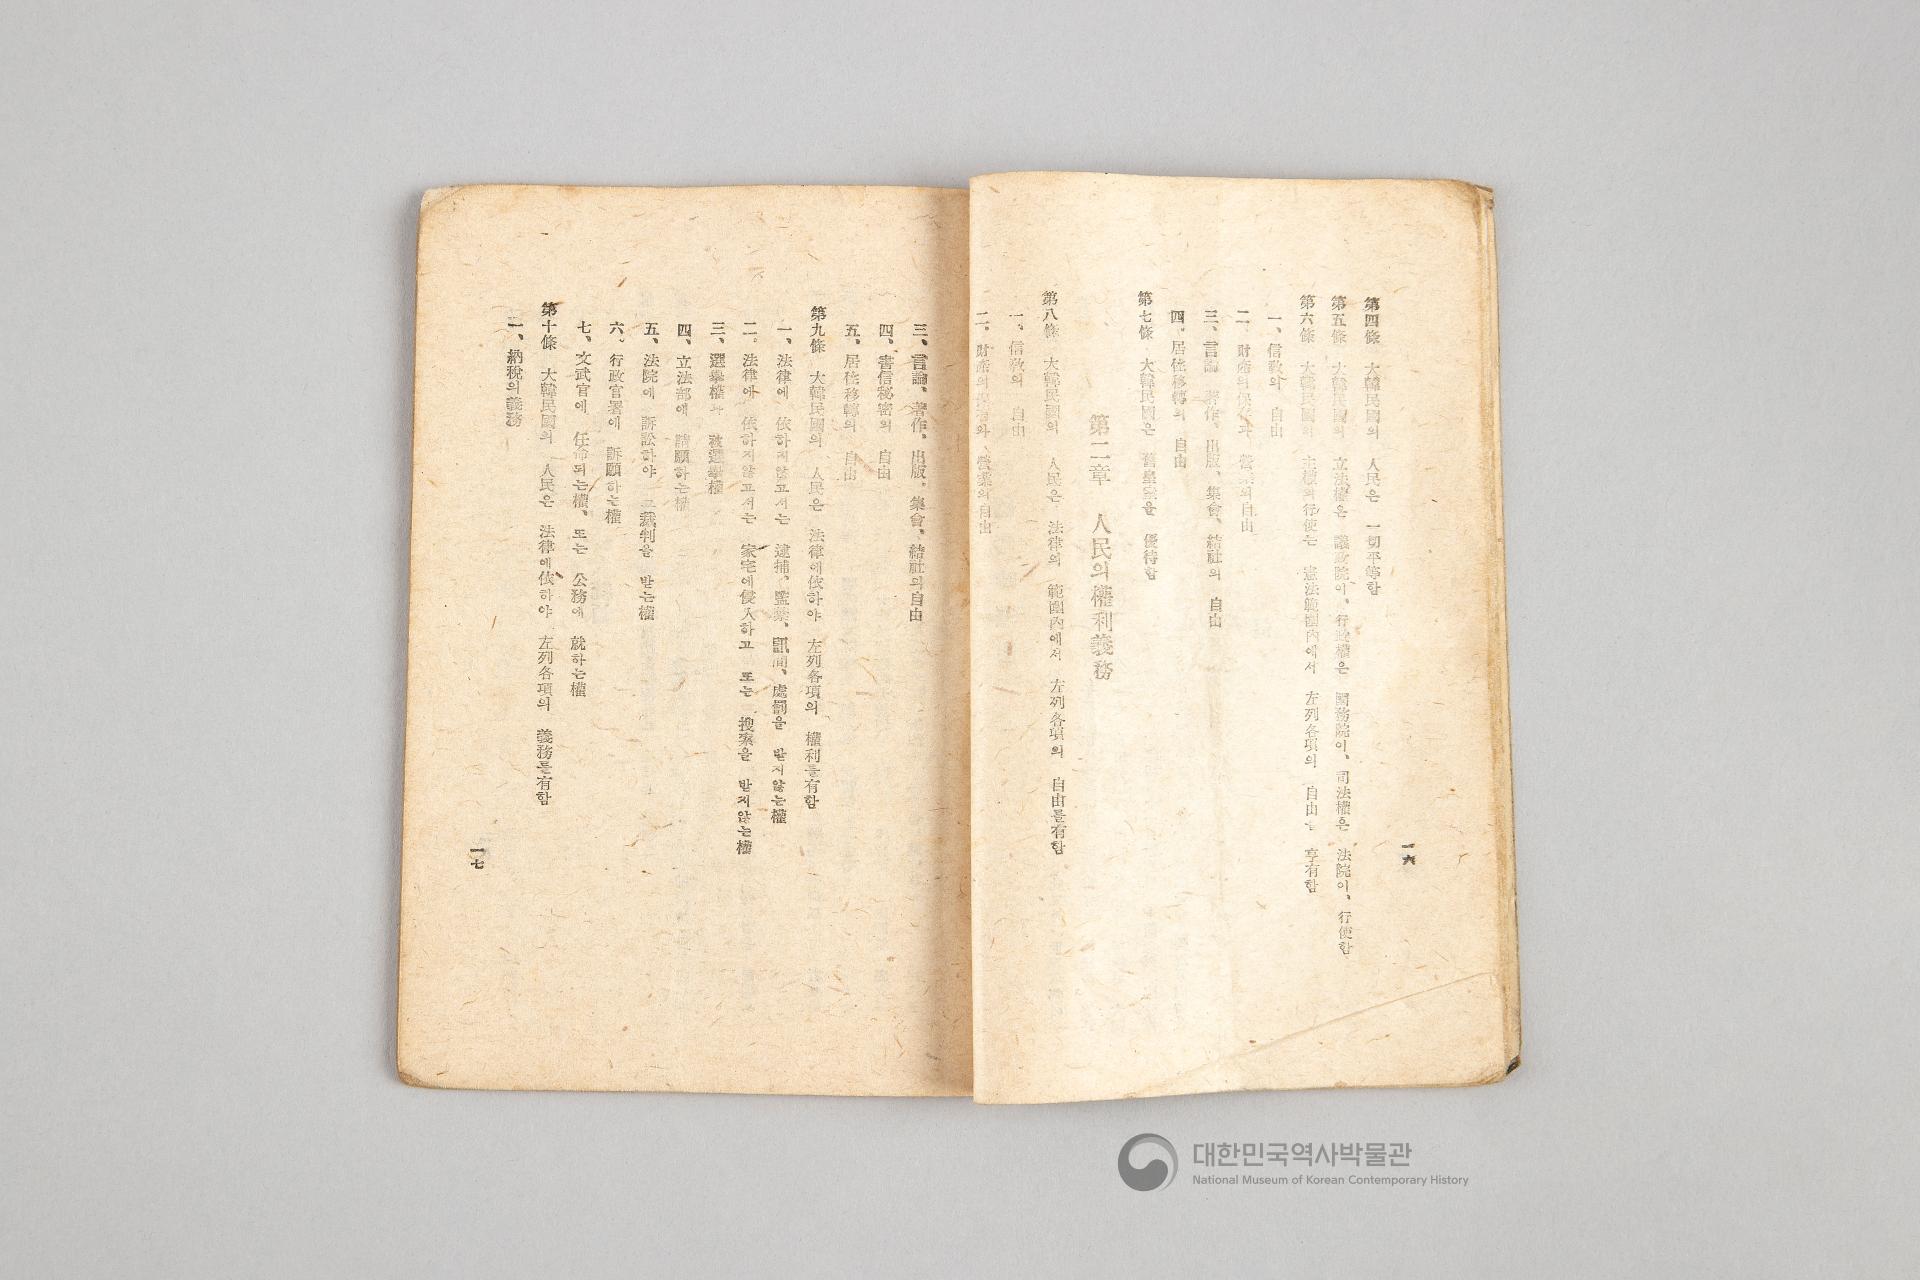 第四條 大韓民國의 人民은 一切平等함
第五條 大韓民國의 立法權은 議政院이、行政權은 國務院이、司法權은 法院이、行使함
第六條 大韓民國의 主權의行使는 憲法範圍內에서 左列各項의 自由를 享有함
一、信敎의 自由
二、財產의保有과 營業의自由
三、言論、著作、出版、集會、結社의 自由
四、居住移轉의 自由
第七條 大韓民國은 舊皇室을 優待함
第二章 人民의權利義務
第八條 大韓民國의 人民은 法律의 範圍內에서 左列各項의 自由를有함
一、信敎의 自由
二、財產의保有와、營業의自由
一六
三、言論、著作、出版、集會、結社의自由
四、書信秘密의 自由
五、居住移轉의 自由
第九條 大韓民國의 人民은 法律에依하야 左列各項의 權利를有함
一、法律에 依하지않고서는 逮捕、監禁、訊問、處罰을 받지않는權
二、法律에 依하지않고서는 家宅에侵入하고 또는 搜索을 받지않는權
三、選擧權과 被選擧權
四、立法部에 請願하는權
五、法院에 訴訟하야 그裁判을 받는權
六、行政官署에 訴願하는權
七、文武官에 任命되는權、또는 公務에 就하는權
第十條 大韓民國의 人民은 法律에依하야 左列各項의 義務를有함
一、納稅의義務
一七
대한민국역사박물관
National Museum of Korean Contemporary History